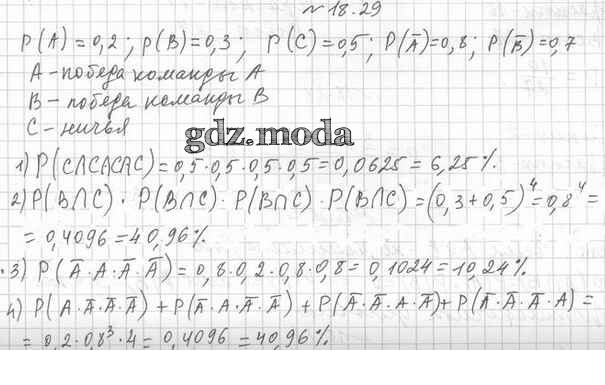 № 18.29
P(A) = 0,2; P(B) = 0,3; P(C) = 0,5; P(Ā) = 0,8; P(B̄) = 0,7
A - победа команды A
B - победа команды B
C - ничья
gdz.moda
1) P(C∩C∩C∩C) = 0,5·0,5·0,5·0,5 = 0,0625 = 6,25%.
2) P(B∩C) · P(B∩C) · P(B∩C) · P(B∩C) = (0,3+0,5)⁴ = 0,8⁴ =
= 0,4096 = 40,96%.
3) P(Ā·A·Ā·Ā) = 0,8·0,2·0,8·0,8 = 0,1024 = 10,24%.
4) P(A·Ā·Ā·Ā) + P(Ā·A·Ā·Ā) + P(Ā·Ā·A·Ā) + P(Ā·Ā·Ā·A) =
= 0,2·0,8³·4 = 0,4096 = 40,96%